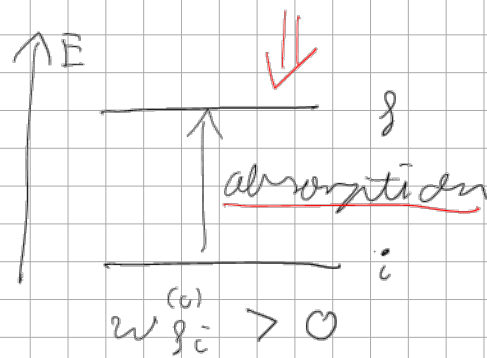 E
f
absorption
i
ω_{fi}^{(0)} > 0